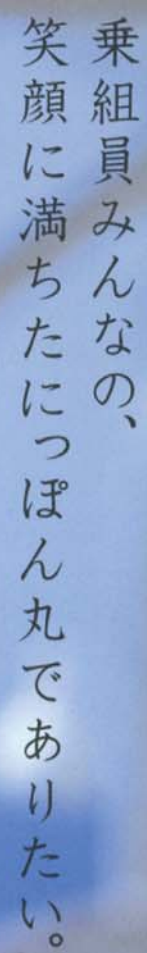 乗組員みんなの、
笑顔に満ちたにっぽん丸でありたい。